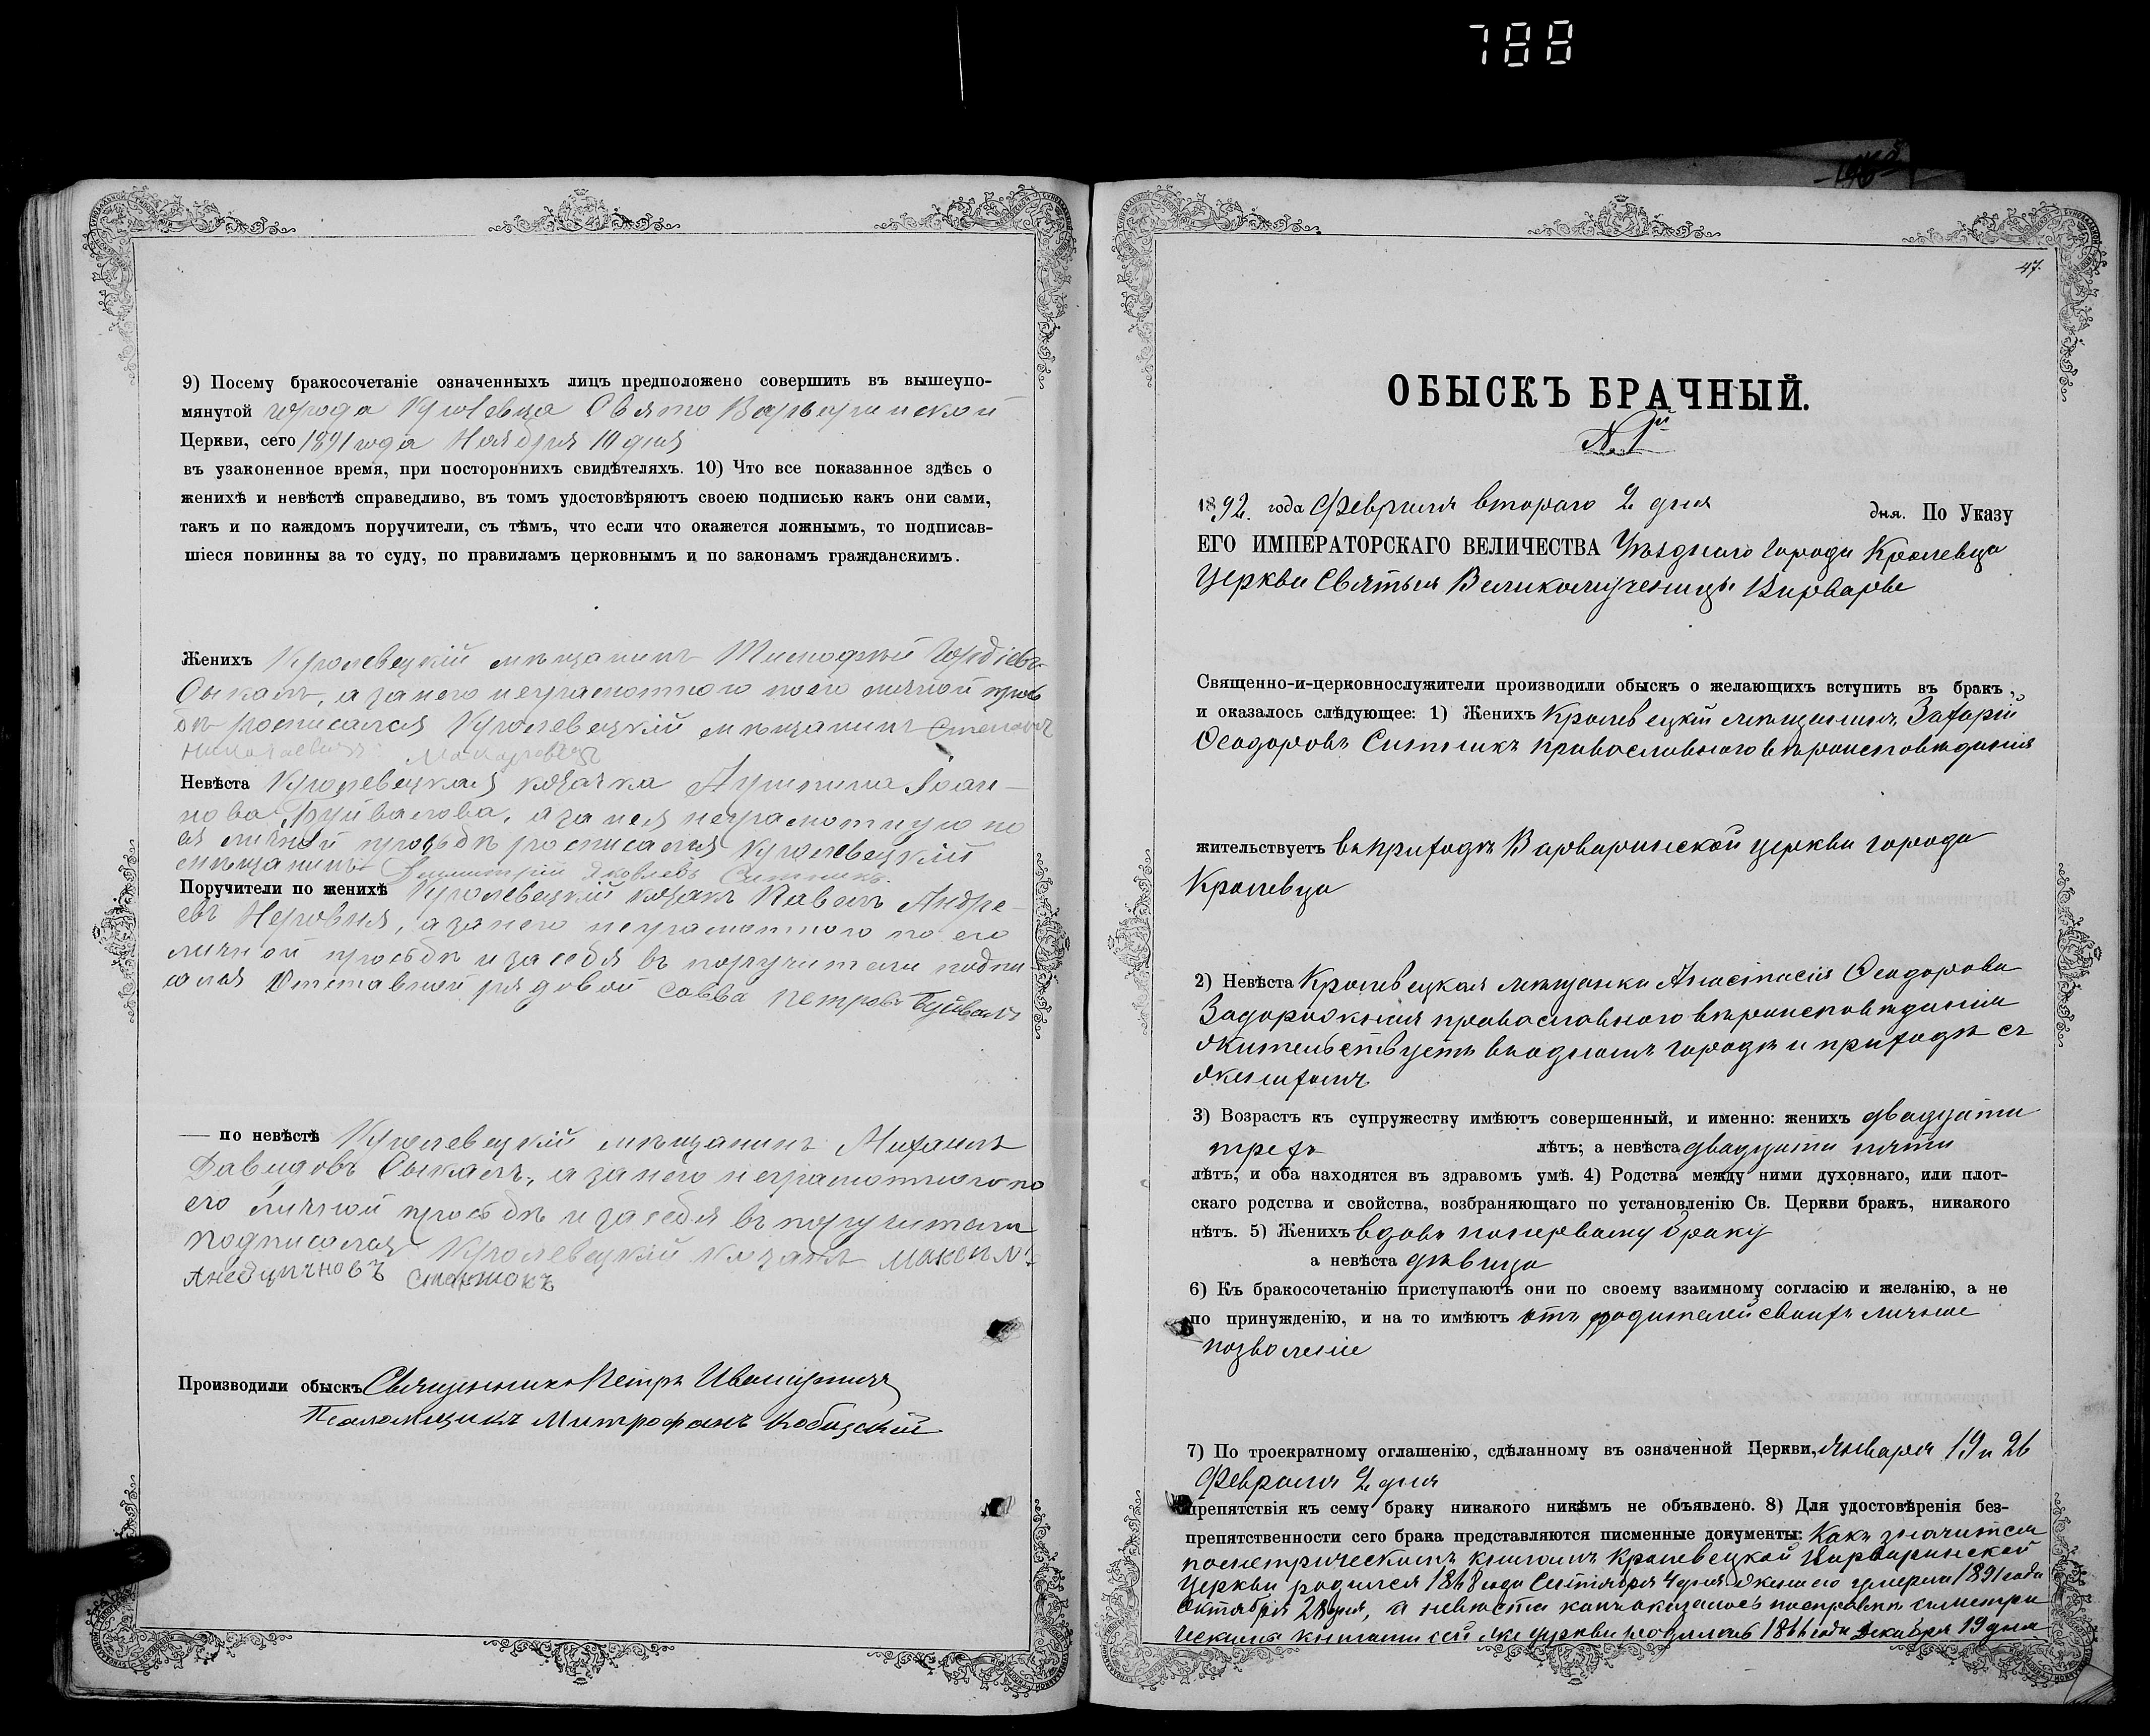 788
9) Посему бракосочетаніе означенныхъ лицъ предположено совершить въ вышеупо-
мянутой города Кролевца Свято Варваринской
Церкви, сего 1891 года Ноября 10 дня
въ узаконенное время, при постороннихъ свидѣтеляхъ. 10) Что все показанное здѣсь о
женихѣ и невѣстѣ справедливо, въ томъ удостовѣряютъ своею подписью какъ они сами,
такъ и по каждомъ поручители, съ тѣмъ, что если что окажется ложнымъ, то подписав-
шіеся повинны за то суду, по правиламъ церковнымъ и по законамъ гражданскимъ.
Женихъ Кролевецкій мѣщанинъ Тимофей Гордіевъ
а за него неграмотного по его личной прось
бѣ росписался Кролевецкій мѣщанинъ Степанъ
Николаевичъ
Невѣста Кролевецкая козачка Агрипина Іоан-
нова Буйвалова, а за нея неграмотную по
ея личной просьбѣ росписался Кролевецкій
мѣщанинъ Димитрій Яковлевъ Ситникъ.
Поручители по женихѣ Кролевецкій козакъ Павелъ Андре-
евъ а за него неграмотного по его
личной просьбѣ и за себя въ поручители подпи-
сался Отставной рядовой Савва Петровъ Буйвалъ
— по невѣстѣ Кролевецкій мѣщанинъ Михаилъ
Давидовъ а за него неграмотного по
его личной просьбѣ и за себя въ поручители
подписался Кролевецкій козакъ Максимъ
Производили обыскъ Священникъ Петръ
Псаломщикъ Митрофанъ
47.
ОБЫСКЪ БРАЧНЫЙ.
№ 1й
1892. года Февраля второго 2 дня дня. По Указу
ЕГО ИМПЕРАТОРСКАГО ВЕЛИЧЕСТВА Уѣзднаго города Кролевца
Церкви Святыя Великомученицы Варвары
Священно-и-церковнослужители производили обыскъ о желающихъ вступить въ бракъ,
и оказалось слѣдующее: 1) Женихъ Кролевецкій мѣщанинъ Захарій
Ѳеодоровъ Ситникъ православного вѣроисповѣданія
жительствуетъ въ приходѣ Варваринской церкви города
Кролевца
2) Невѣста Кролевецкая мѣщанка Анастасія Ѳеодорова
Задорожная православного вѣроисповѣданія
жительствуетъ въ одномъ городѣ и приходѣ съ
женихомъ
3) Возрастъ къ супружеству имѣютъ совершенный, и именно: женихъ двадцати
трехъ лѣтъ; а невѣста двадцати пяти
лѣтъ, и оба находятся въ здравомъ умѣ. 4) Родства между ними духовнаго, или плот-
скаго родства и свойства, возбраняющаго по установленію Св. Церкви бракъ, никакого
нѣтъ. 5) Женихъ вдовъ по первому браку
а невѣста дѣвица
6) Къ бракосочетанію приступаютъ они по своему взаимному согласію и желанію, а не
по принужденію, и на то имѣютъ отъ родителей своихъ личное
позволеніе
7) По троекратному оглашенію, сдѣланному въ означенной Церкви, Января 19 и 26
Февраля 2 дня
препятствія къ сему браку никакого никѣмъ не объявлено. 8) Для удостовѣренія без-
препятственности сего брака представляются писменные документы: Какъ значится
по метрическимъ книгамъ Кролевецкой Варваринской
Церкви родился 1868 года Сентября 4 дня жена его умерла 1891 года
Октября 28 дня, а невѣста какъ оказалось по справкѣ съ метри
ческими книгами сей же церкви родилась 1866 года Декабря 19 дня